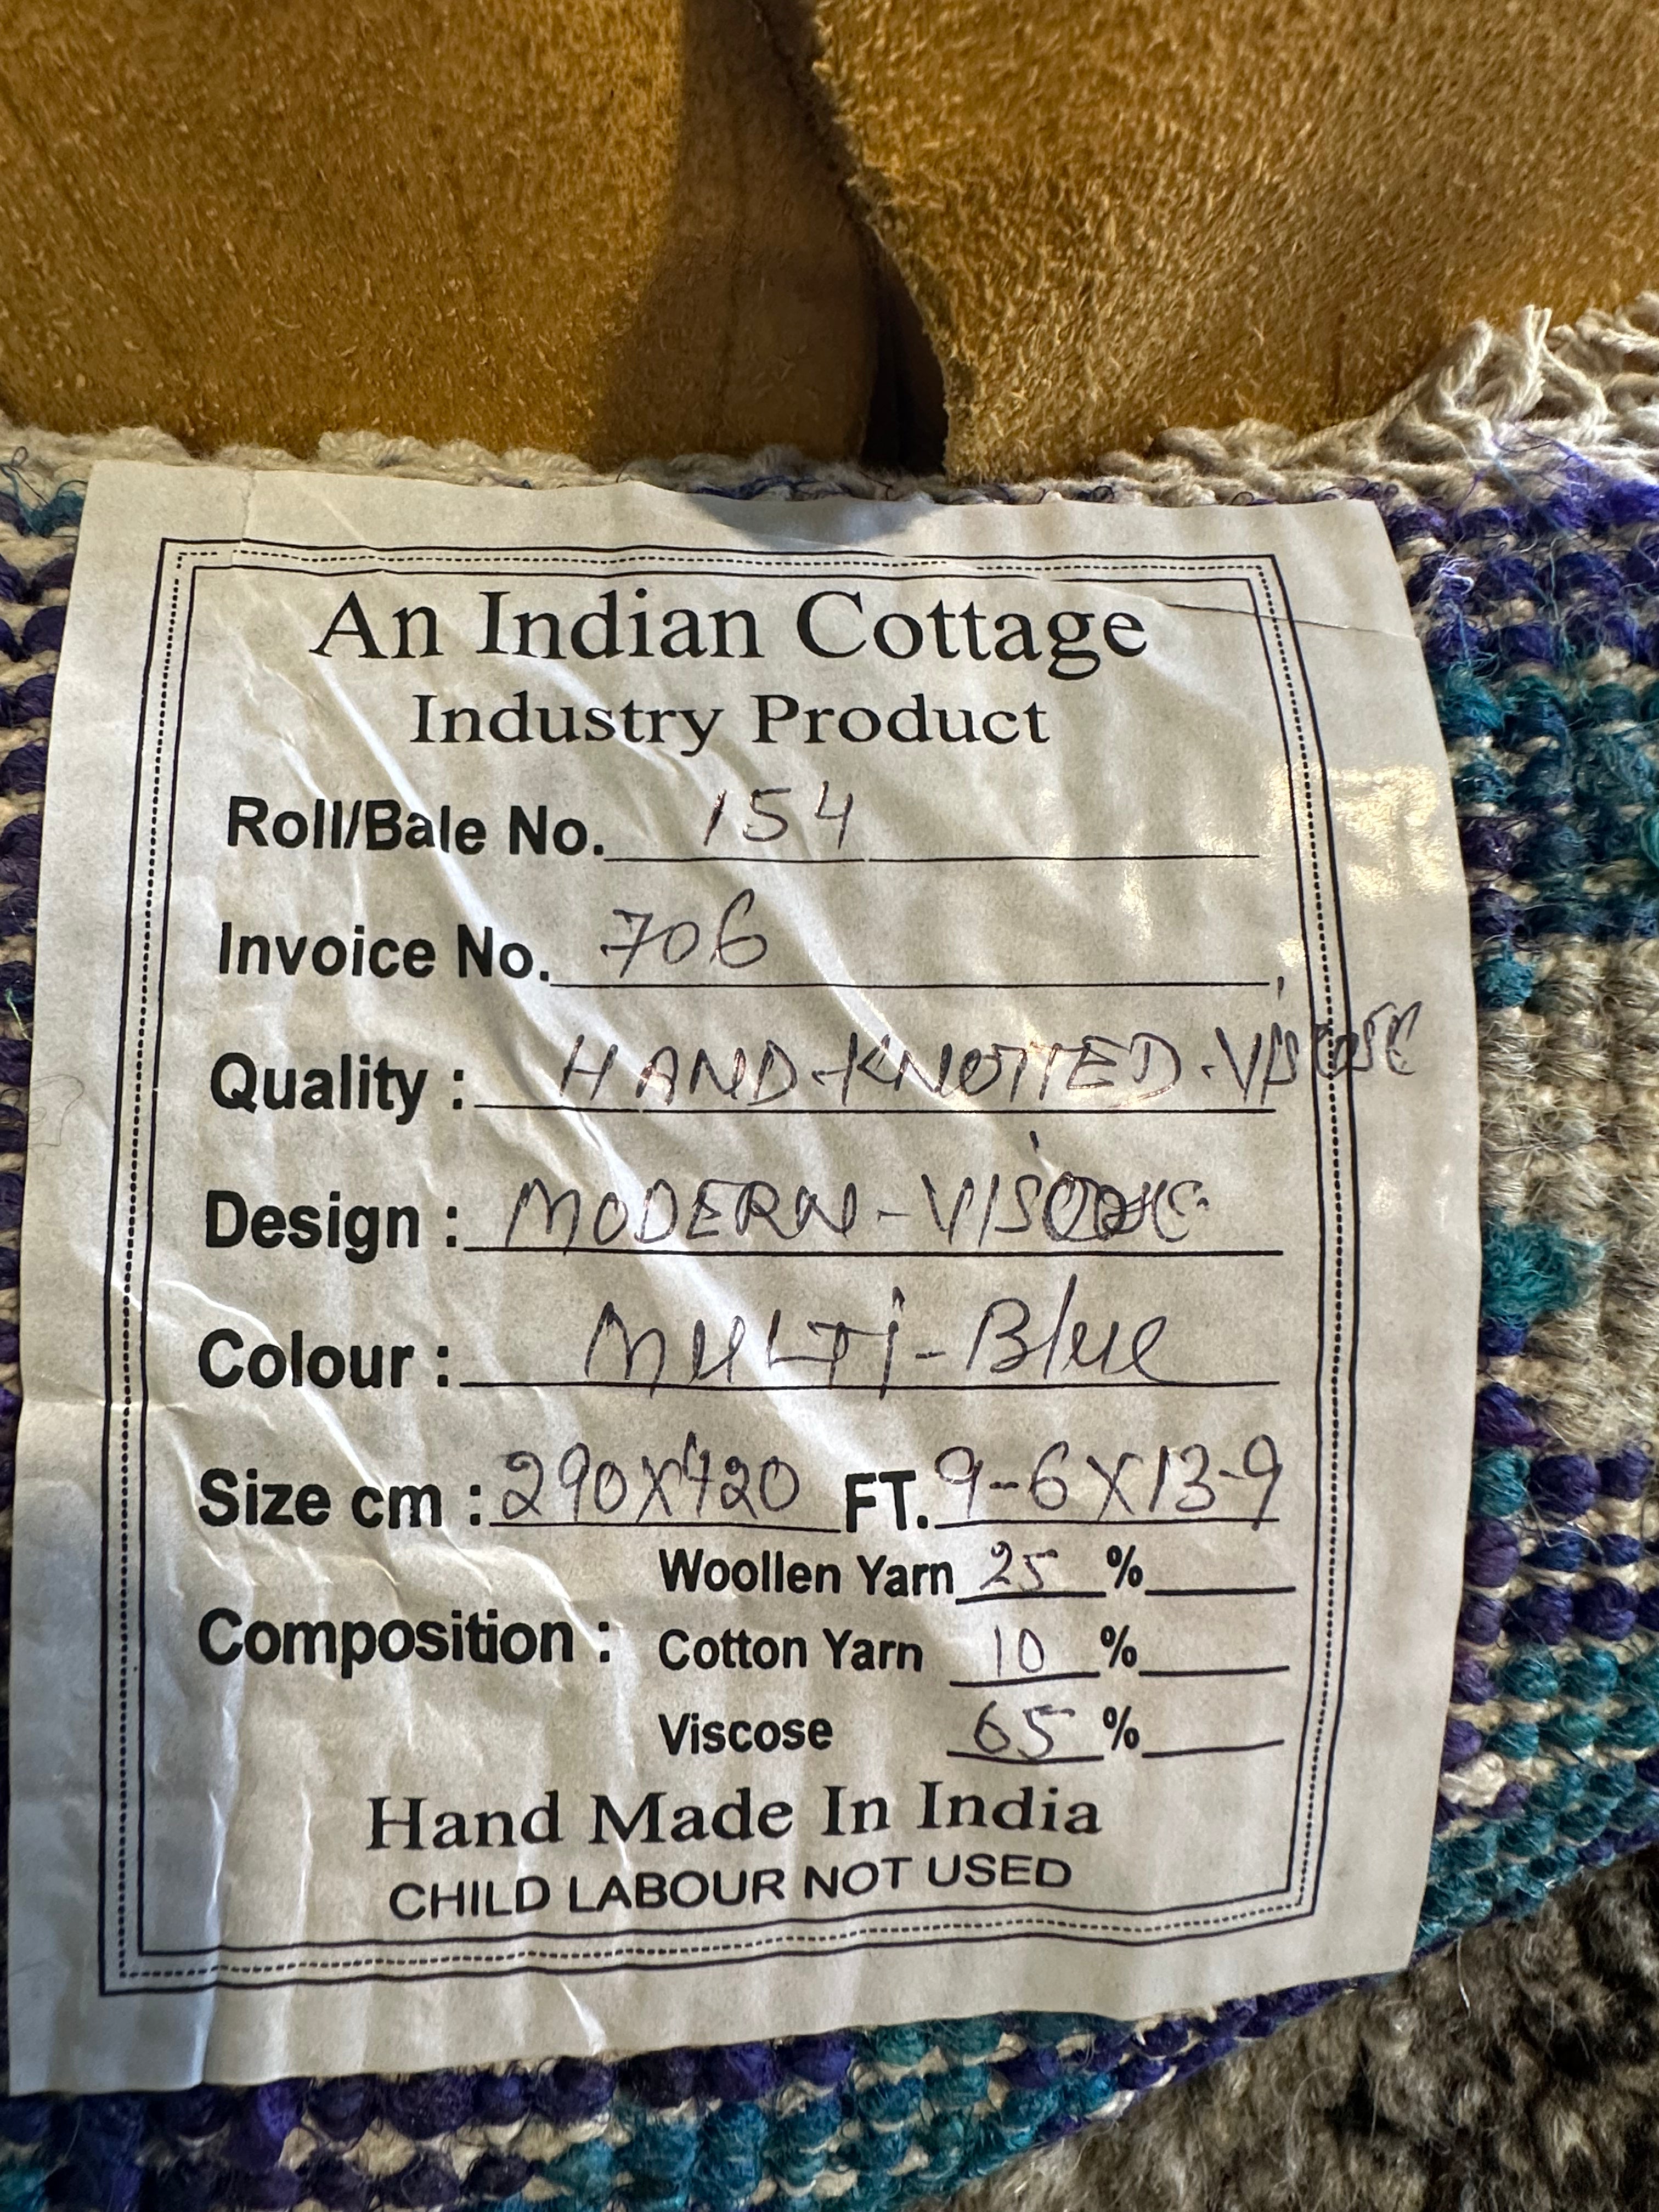 An Indian Cottage
Industry Product
Roll/Bale No. 154
Invoice No. 706
Quality : HAND-KNOTTED-VISCOSE
Design : MODERN-
Colour : MULTi-Blue
Size cm : 290X420 FT. 9-6X13-9
Woollen Yarn 25 %
Composition : Cotton Yarn 10 %
Viscose 65 %
Hand Made In India
CHILD LABOUR NOT USED